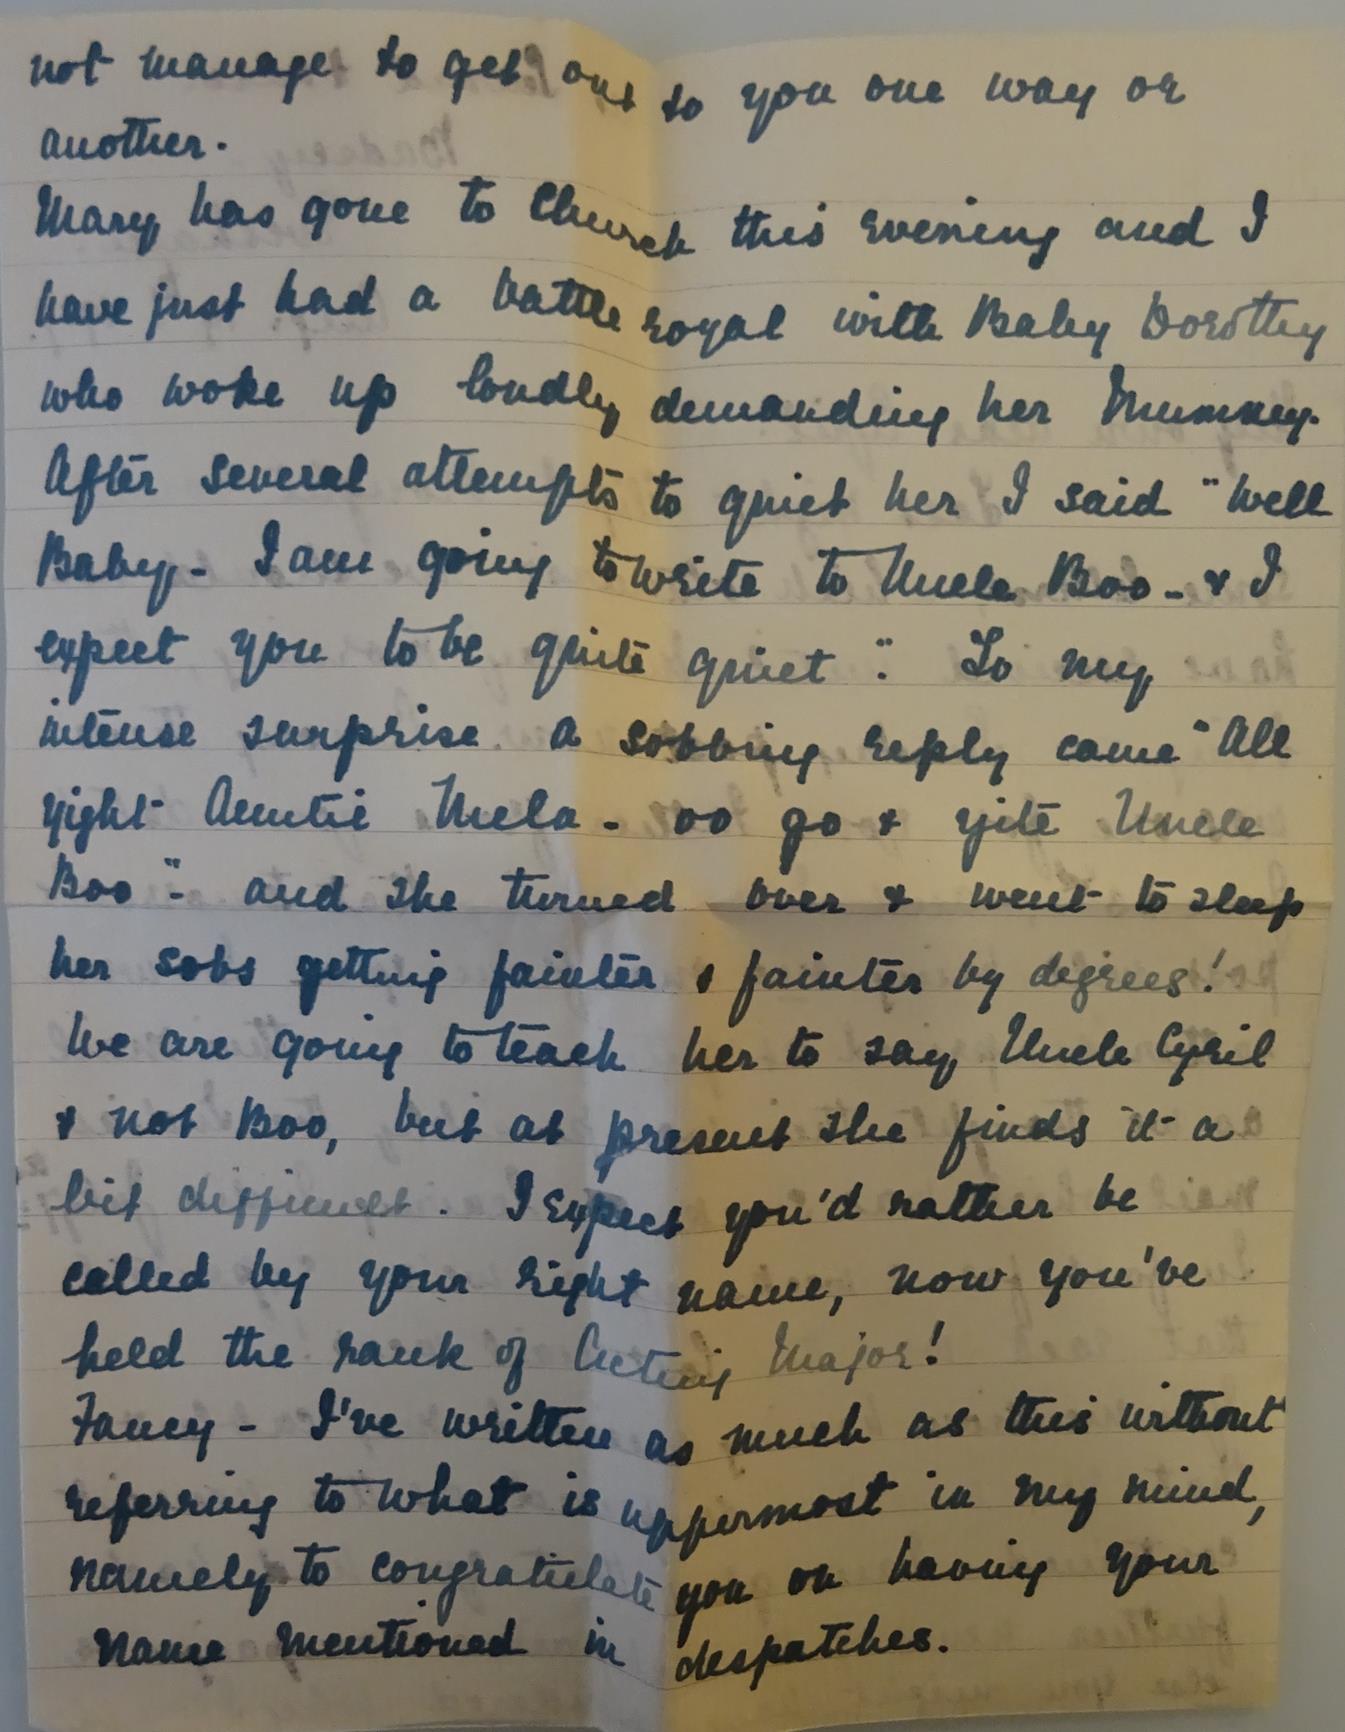 not manage to get out to you one way or
another.
Mary has gone to Church this evening and I
have just had a battle royal with Baby Dorothy
who woke up loudly demanding her Mummy.
After several attempts to quiet her I said "Well
Baby - I am going to write to Uncle Boo - & I
expect you to be quite quiet". To my
intense surprise a sobbing reply came "All
yight Auntie Uncla - oo go & yite Uncle
Boo" - and she turned over & went to sleep
her sobs getting fainter & fainter by degrees!
We are going to teach her to say Uncle Cyril
& not Boo, but at present she finds it a
bit difficult. I expect you'd rather be
called by your right name, now you've
held the rank of Acting Major!
Fancy - I've written as much as this without
referring to what is uppermost in my mind,
namely to congratulate you on having your
name mentioned in despatches.